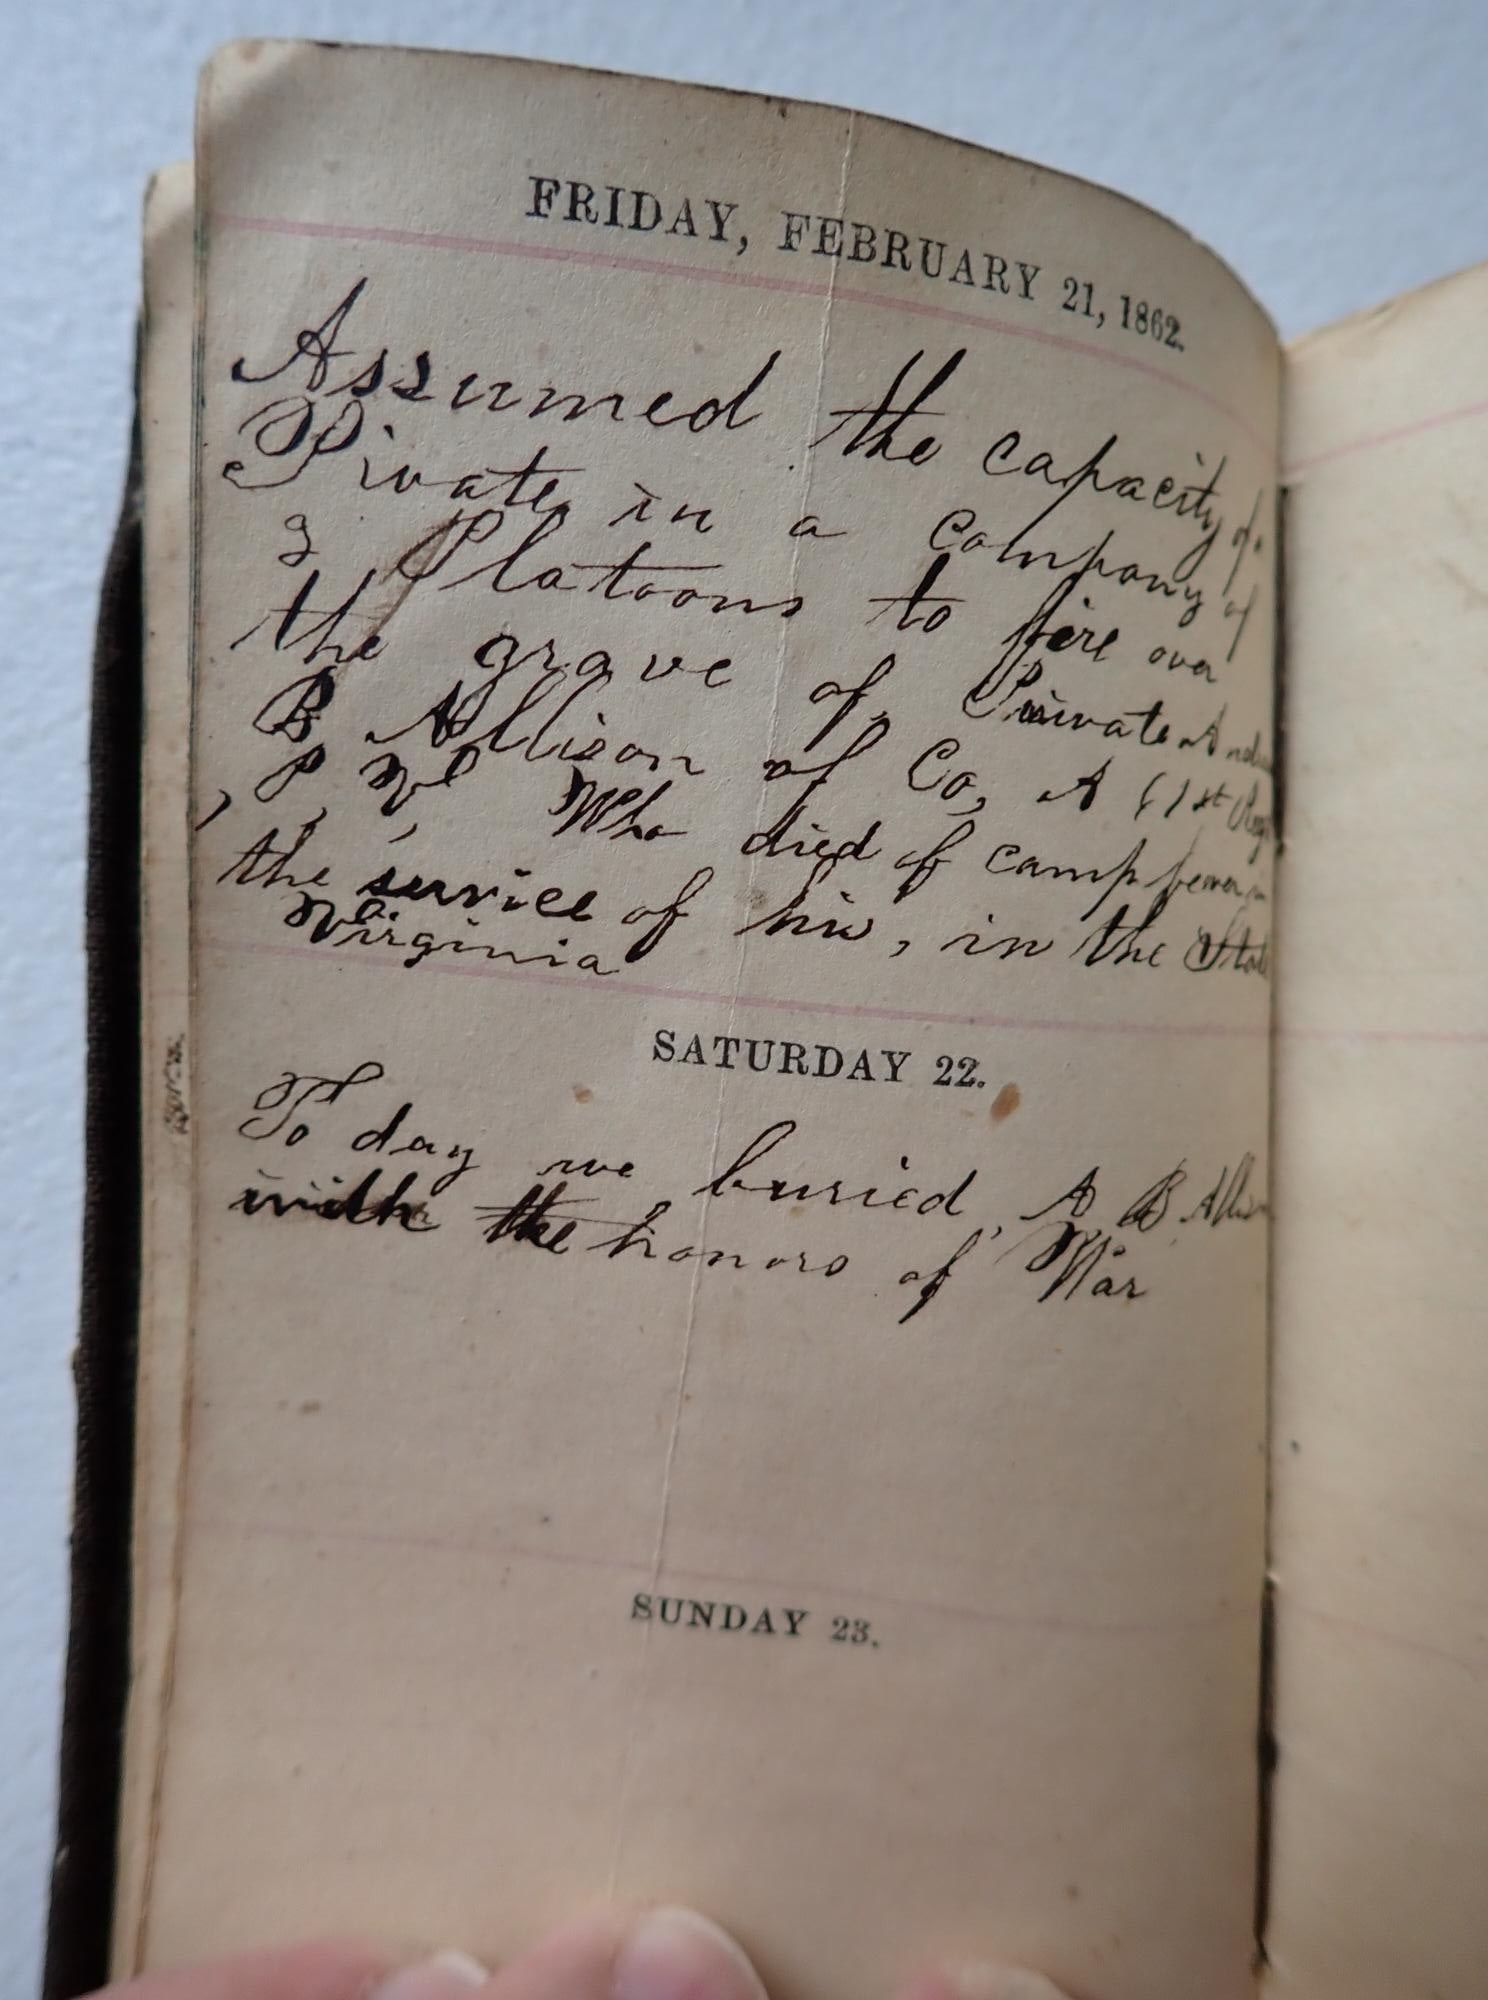 FRIDAY, FEBRUARY 21, 1862.
Assumed the capacity of
Private in a company of
Platoons to fire over
the grave of Private
B Allison of Co, A 61st Reg
, P, V, Who died of camp fever in
the service of his, in the State
Virginia
SATURDAY 22.
To day we buried, A B Allison
with the honors of War
SUNDAY 23.